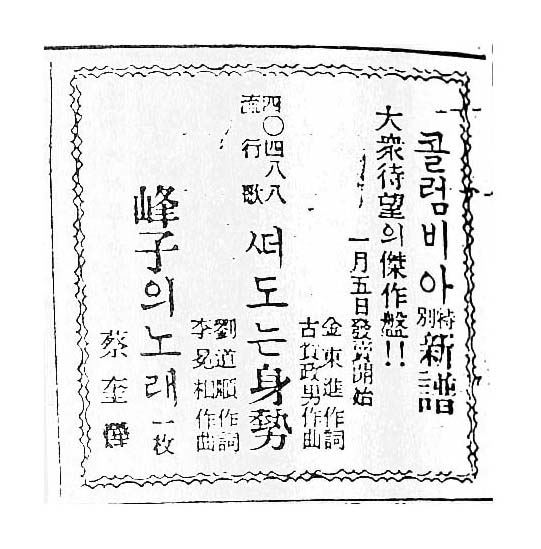 콜럼비아 特別 新譜
大衆待望의傑作盤!!
一月五日發賣開始
四〇四八八
流行歌
ᄯᅥ도는身勢
金東進作詞
古賀政男作曲
峰子의노래 一枚
劉道順作詞
李冕相作曲
蔡奎燁